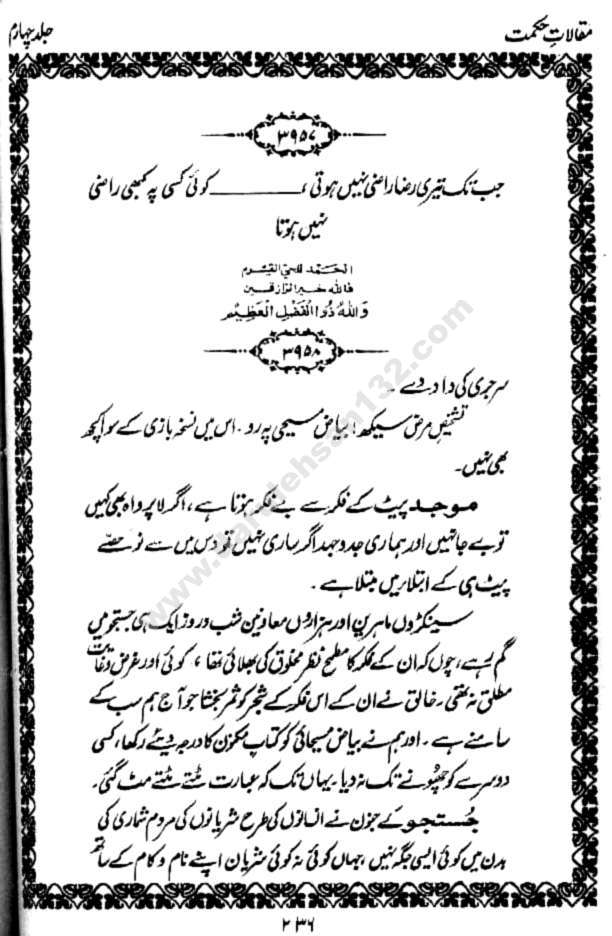 مقالاتِ حکمت
جلد چہارم
۳۹۵۷
جب تک تیری رضا راضی نہیں ہوتی، ــــــــــــ کوئی کسی پہ کبھی راضی
نہیں ہوتا
الحمد للحی القیوم
فاللہ خیر الرازقین
وَاللہُ ذُو الْفَضْلِ الْعَظِیْمِ
۳۹۵۸
سرجری کی داد دے ۔
تشخیصِ مرض سیکھ! بیاضِ مسیحی پہ رو ۔ اس میں نسخہ بازی کے سوا کچھ
بھی نہیں۔
موجد پیٹ کے فکر سے بے فکر ہوتا ہے، اگر لاپرواہ بھی کہیں
تو بے جا نہیں اور ہماری جدوجہد اگر ساری نہیں تو دس میں سے نو حصّے
پیٹ ہی کے ابتلا میں مبتلا ہے ۔
سینکڑوں ماہرین اور ہزاروں معاونین شب و روز ایک ہی جستجو میں
گم رہے، چوں کہ ان کے فکر کا مطمحِ نظر مخلوق کی بھلائی تھا، کوئی اور غرض و غایت
مطلق نہ تھی ۔ خالق نے ان کے اس فکر کے شجر کو ثمر بخشا جو آج ہم سب کے
سامنے ہے ۔ اور ہم نے بیاضِ مسیحائی کو کتابِ مکنون کا درجہ دیئے رکھا، کسی
دوسرے کو چھونے تک نہ دیا ۔ یہاں تک کہ عبارت مٹتے مٹتے مٹ گئی۔
جُستجو کے جنون نے انسانوں کی طرح شریانوں کی مردم شماری کی
بدن میں کوئی ایسی جگہ نہیں، جہاں کوئی نہ کوئی شریان اپنے نام و کام کے ساتھ
۲۳۶
www.daralehsan132.com